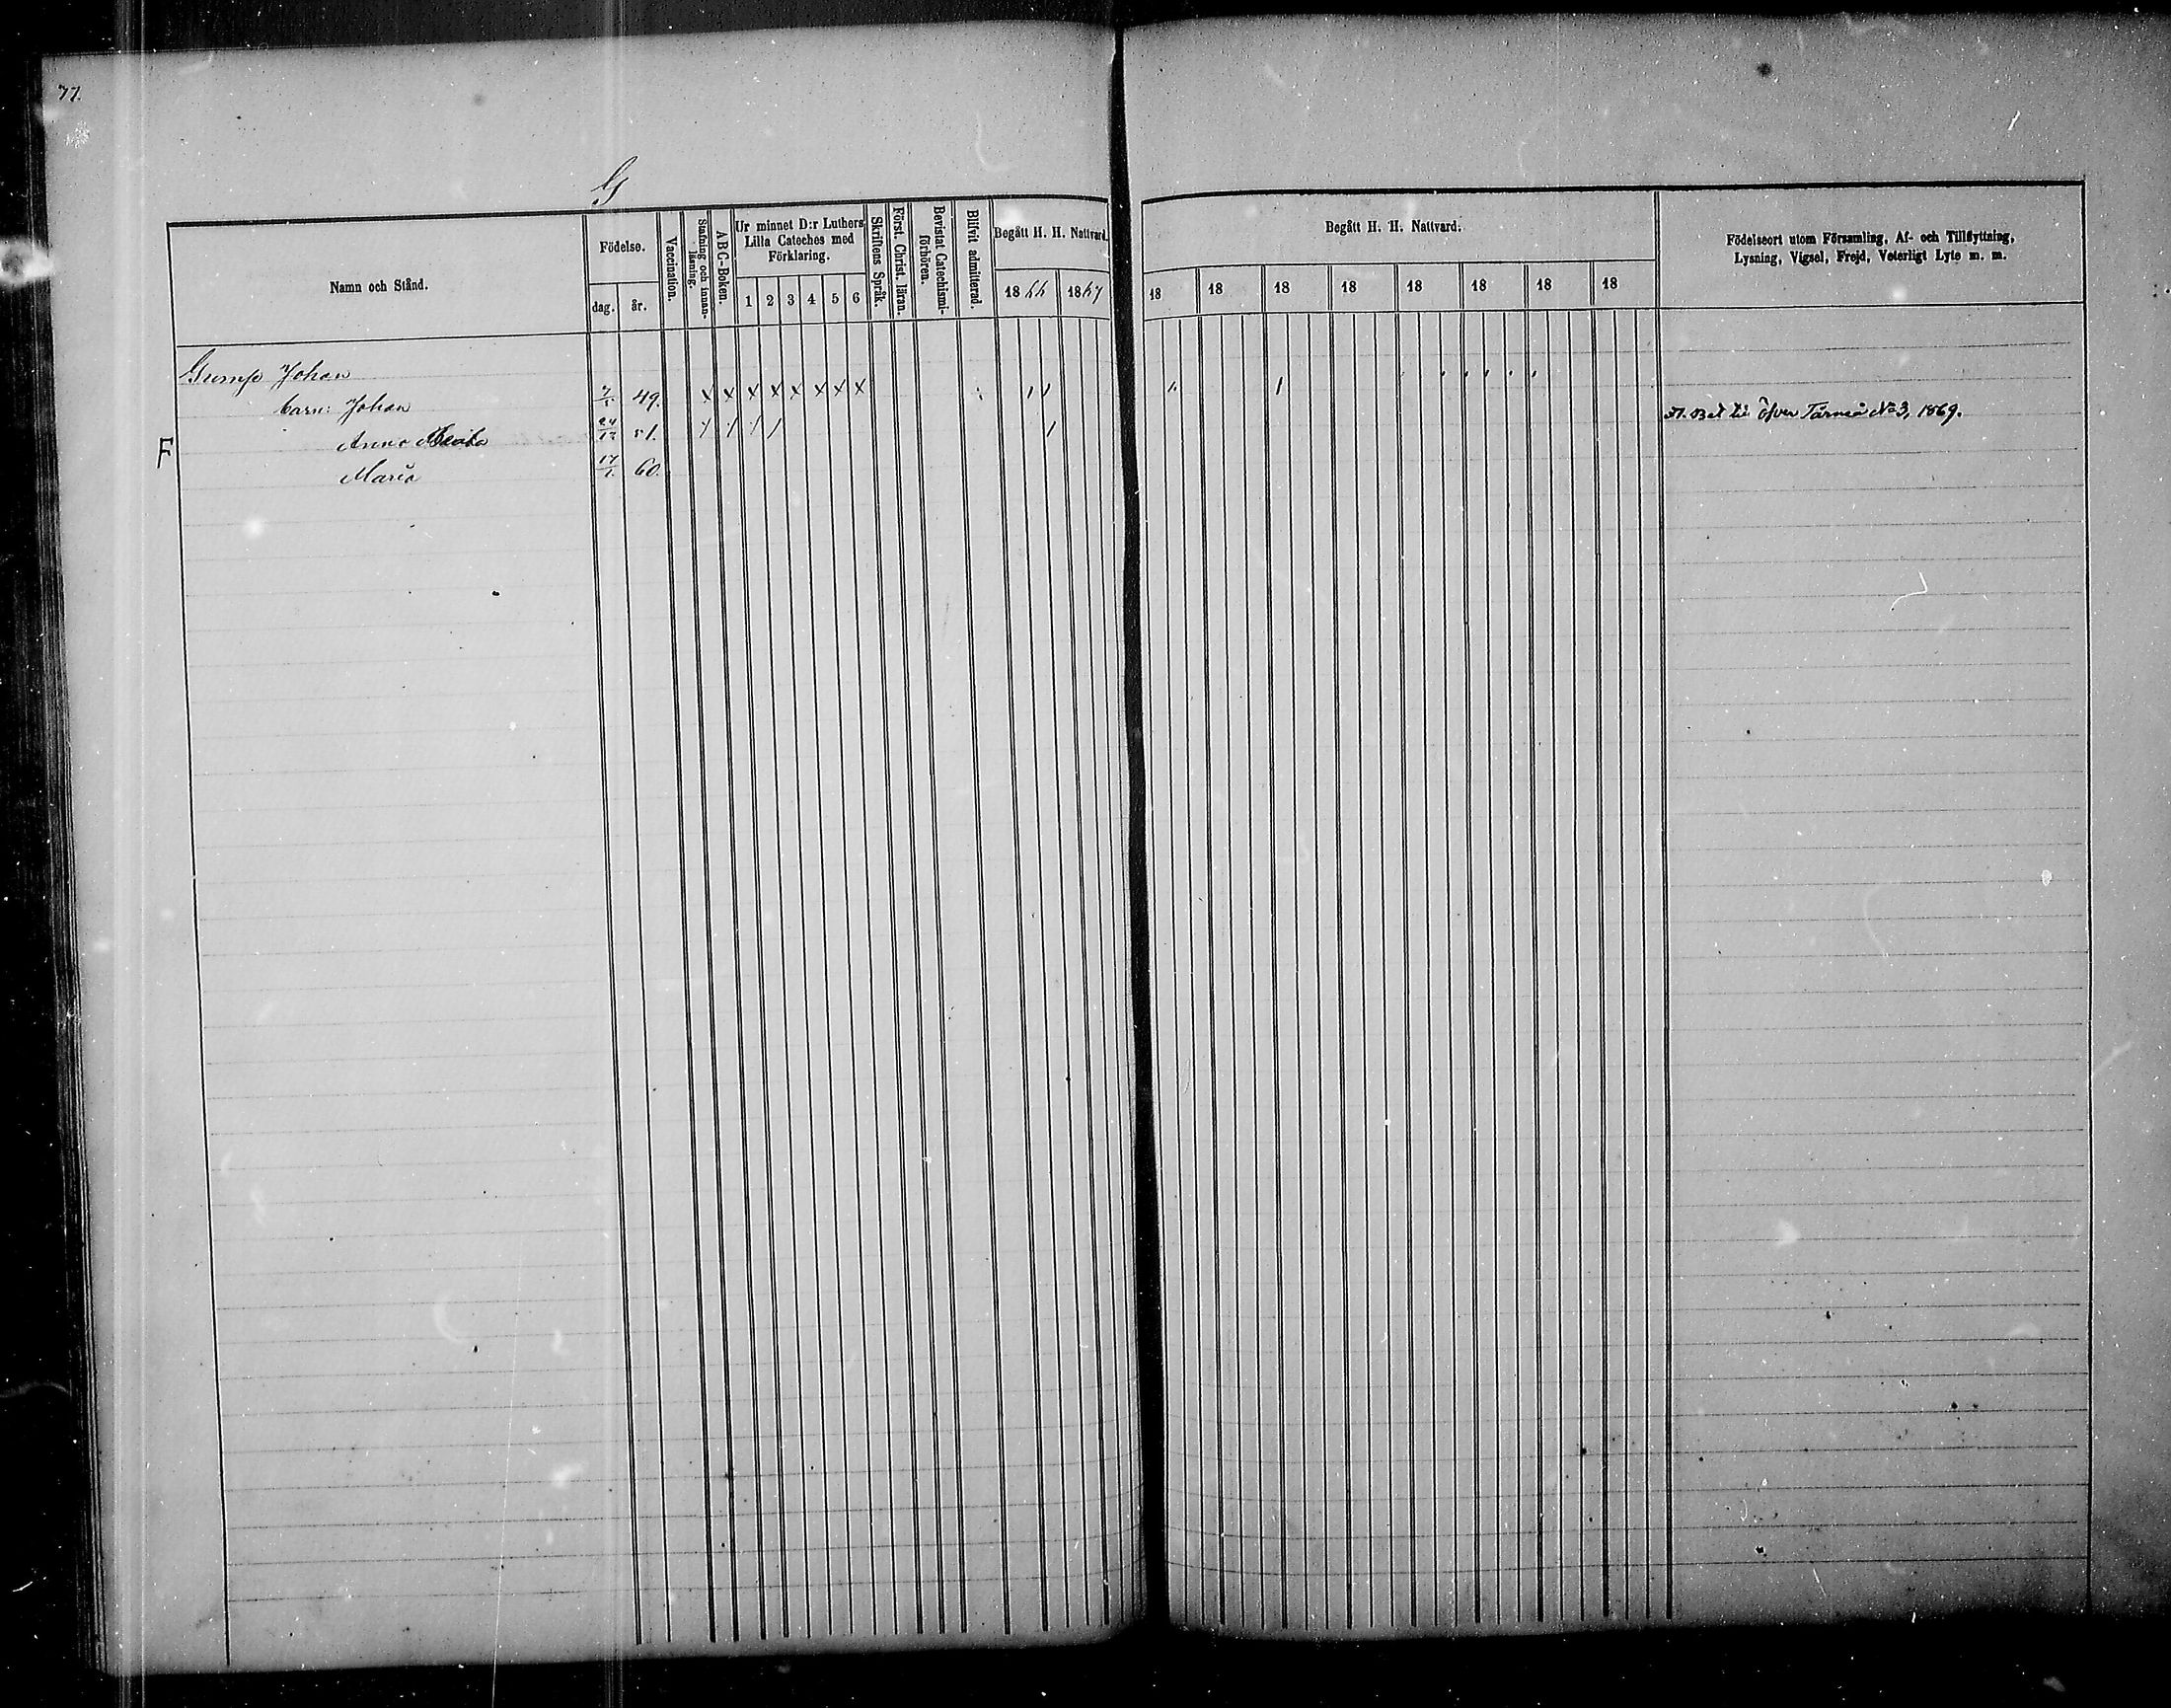 77.
G
Namn och Stånd.
Födelse.
dag.
år.
Vaccination.
Stafning och innanläsning.
A B C-Boken.
Ur minnet D:r Luthers
Lilla Cateches med
Förklaring.
1 2 3 4 5 6
Skriftens Språk.
Först. Christ. läran.
Bevistat Catechismi-
förhören.
Blifvit admitterad.
Begått H. H. Nattvard.
18 66 1867
Begått H. H. Nattvard.
18 18 18 18 18 18 18 18
Födelseort utom Församling, Af- och Tillflyttning,
Lysning, Vigsel, Frejd, Veterligt Lyte m. m.
Gump Johan
barn: Johan 49. x x x x x x x x
F Anna 24/12 51.
Maria 17/1 60.
Fl. Bet till öfver Tärneå No 3, 1869.